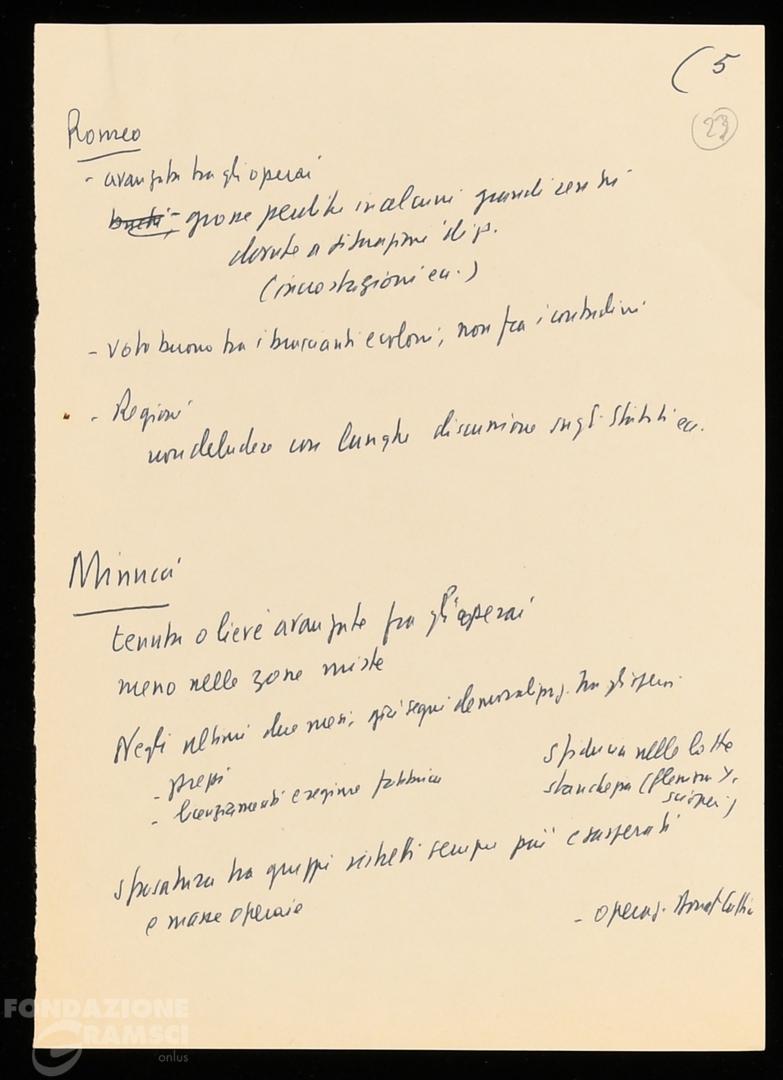 ( 5
23
Romeo
- avanzata tra gli operai
- grosse perdite in alcuni grandi centri
dovute a situazioni di p.
(incrostazioni ecc.)
- Voto buono tra i braccianti e coloni; non fra i contadini
- Regioni
non deludere con lunghe discussione sugli Statuti ecc.
Minucci
tenuta o lieve avanzate fra gli operai
meno nelle zone miste
Negli ultimi due mesi, già segni demoralizz. tra gli operai.
- prezzi
- licenziamenti e regime fabbrica
sfiducia nelle lotte
stanchezza (
scioperi)
spaccatura tra gruppi ristretti sempre più esasperati
e masse operaie
- operaj. Donat Cattin
FONDAZIONE
GRAMSCI
onlus